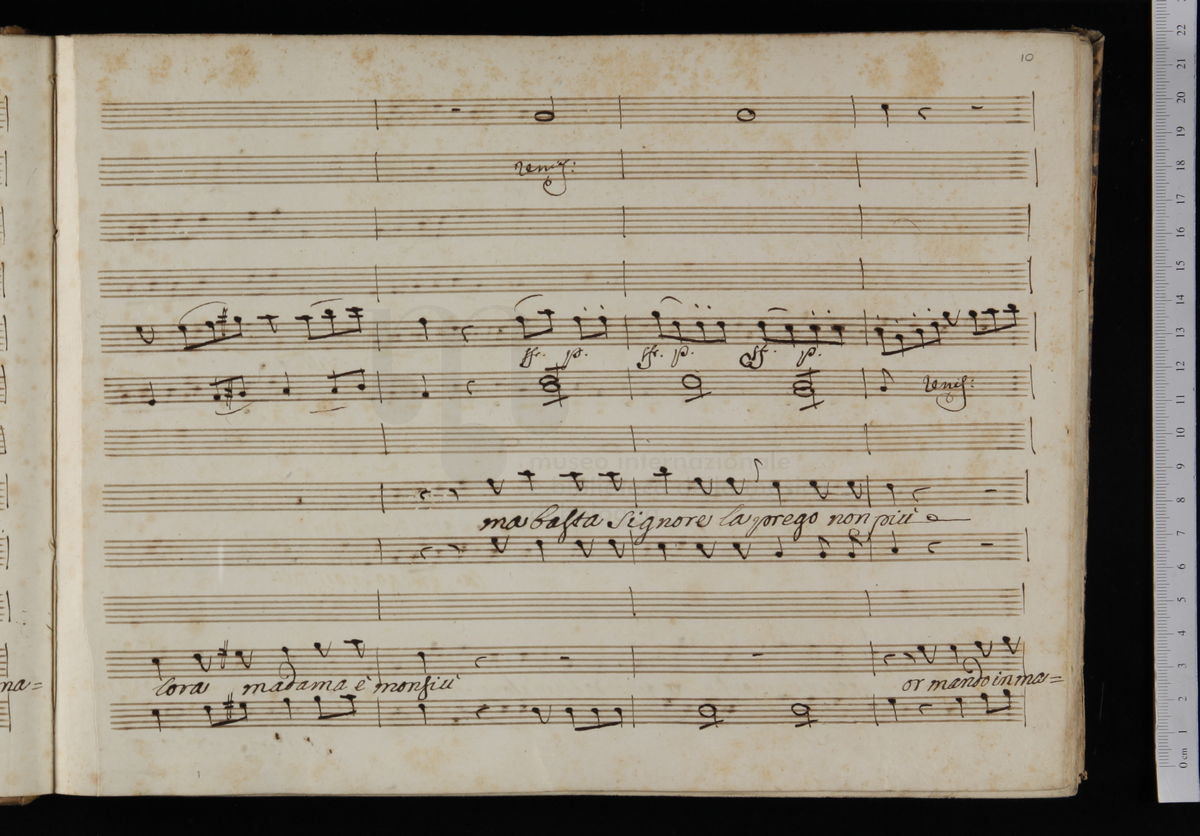 10
ten:
ff. p. ff. p. ff. p.
ten:
museo internazionale
ma basta Signore la prego non più
na=
lora madama è monsiù
or mando in ma=
0 cm 1 2 3 4 5 6 7 8 9 10 11 12 13 14 15 16 17 18 19 20 21 22